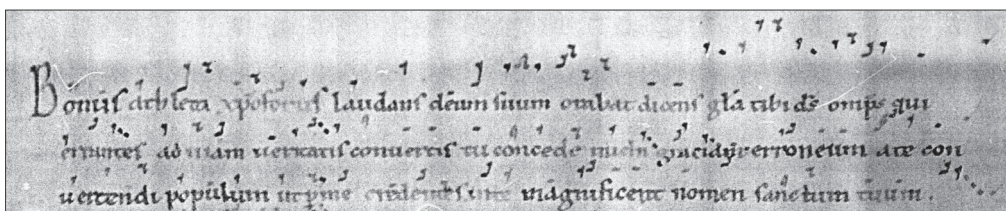 Bonus athleta xpoforus laudans deum suum orabat dicens gła tibi dē omps qui
errantes ad uiam ueritatis conuertis tu concede erroneum a te con
uertendi populum ut me credentes magnificent nomen sanctum tuum.